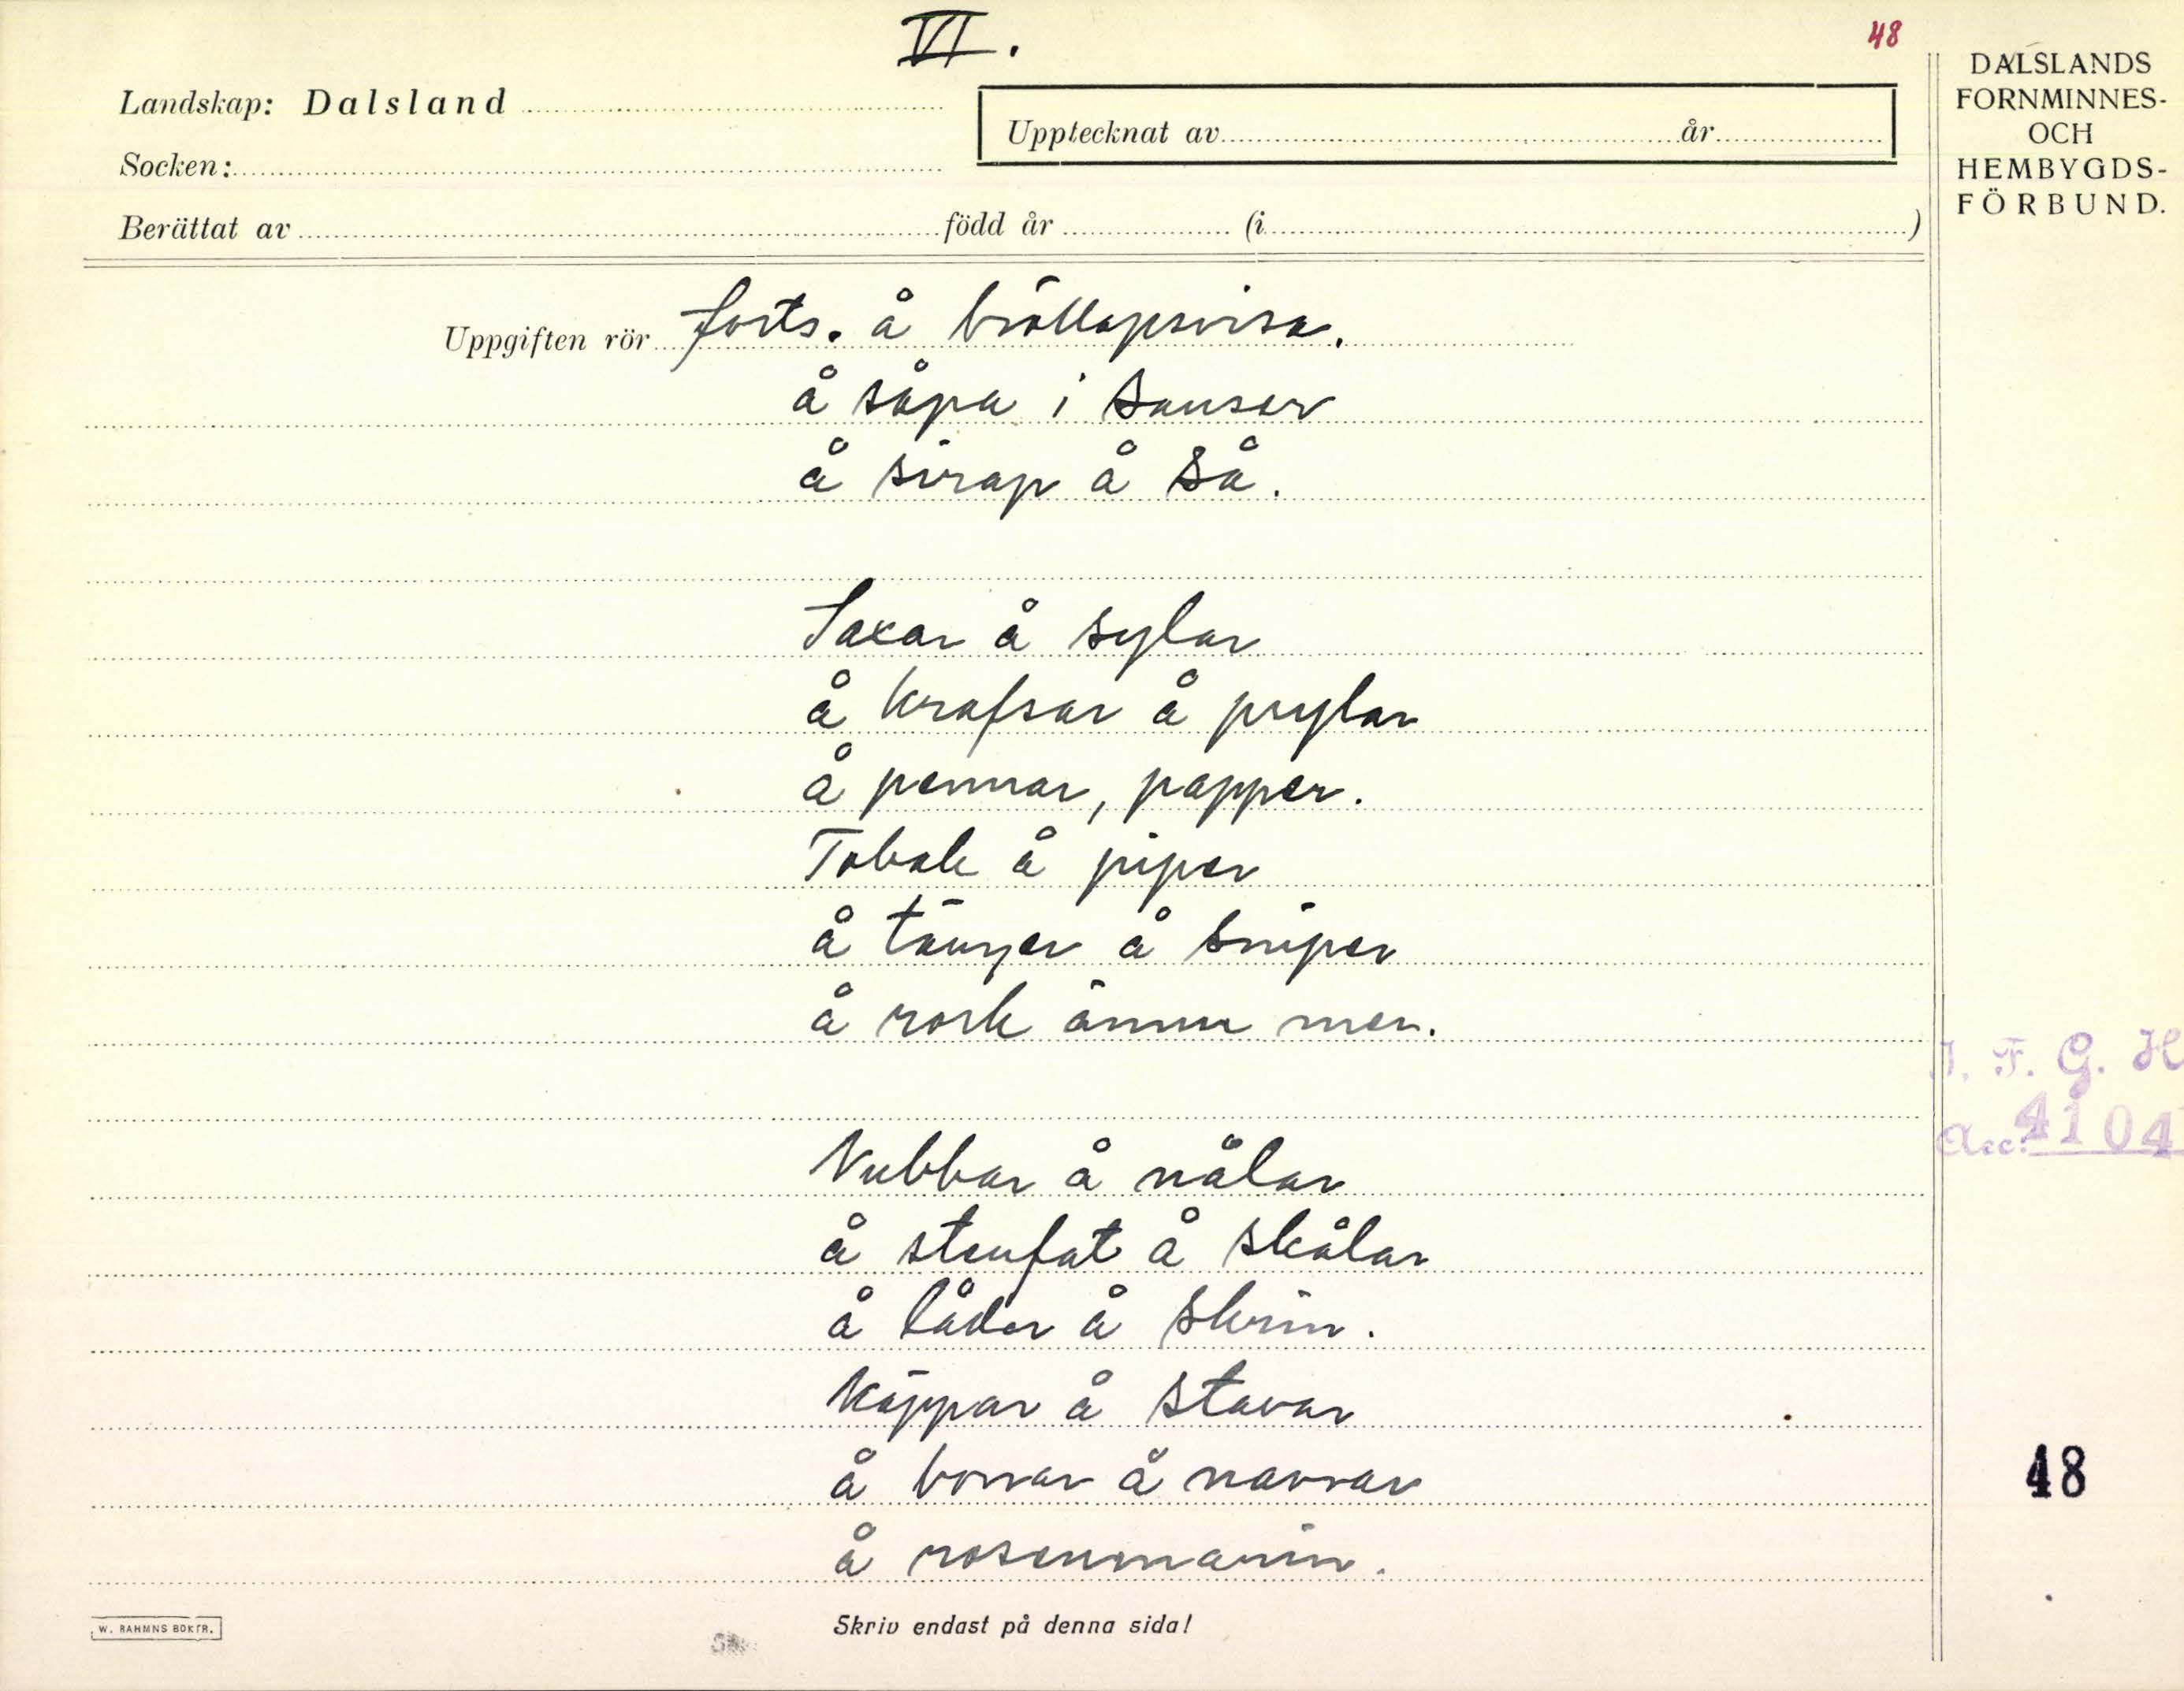 VI.
48
Landskap: Dalsland
Upptecknat av år
Socken:
Berättat av född år (i )
DALSLANDS
FORNMINNES-
OCH
HEMBYGDS-
FÖRBUND.
Uppgiften rör forts. å bröllopsvisa.
å såpa i sanser
å sirap å så.
Saxar å sylar
å krafsar å prylar
å pennar, papper.
Tobak å piper
å tänger å sniper
å rock ännu mer.
Nubbar å nålar
å stenfat å skålar
å låder å skrin.
Käppar å stavar
å borrar å navrar
å rosenmarin.
I. F. G. H
Acc: 4104
48
W. RAHMNS BOKTR.
Skriv endast på denna sida!